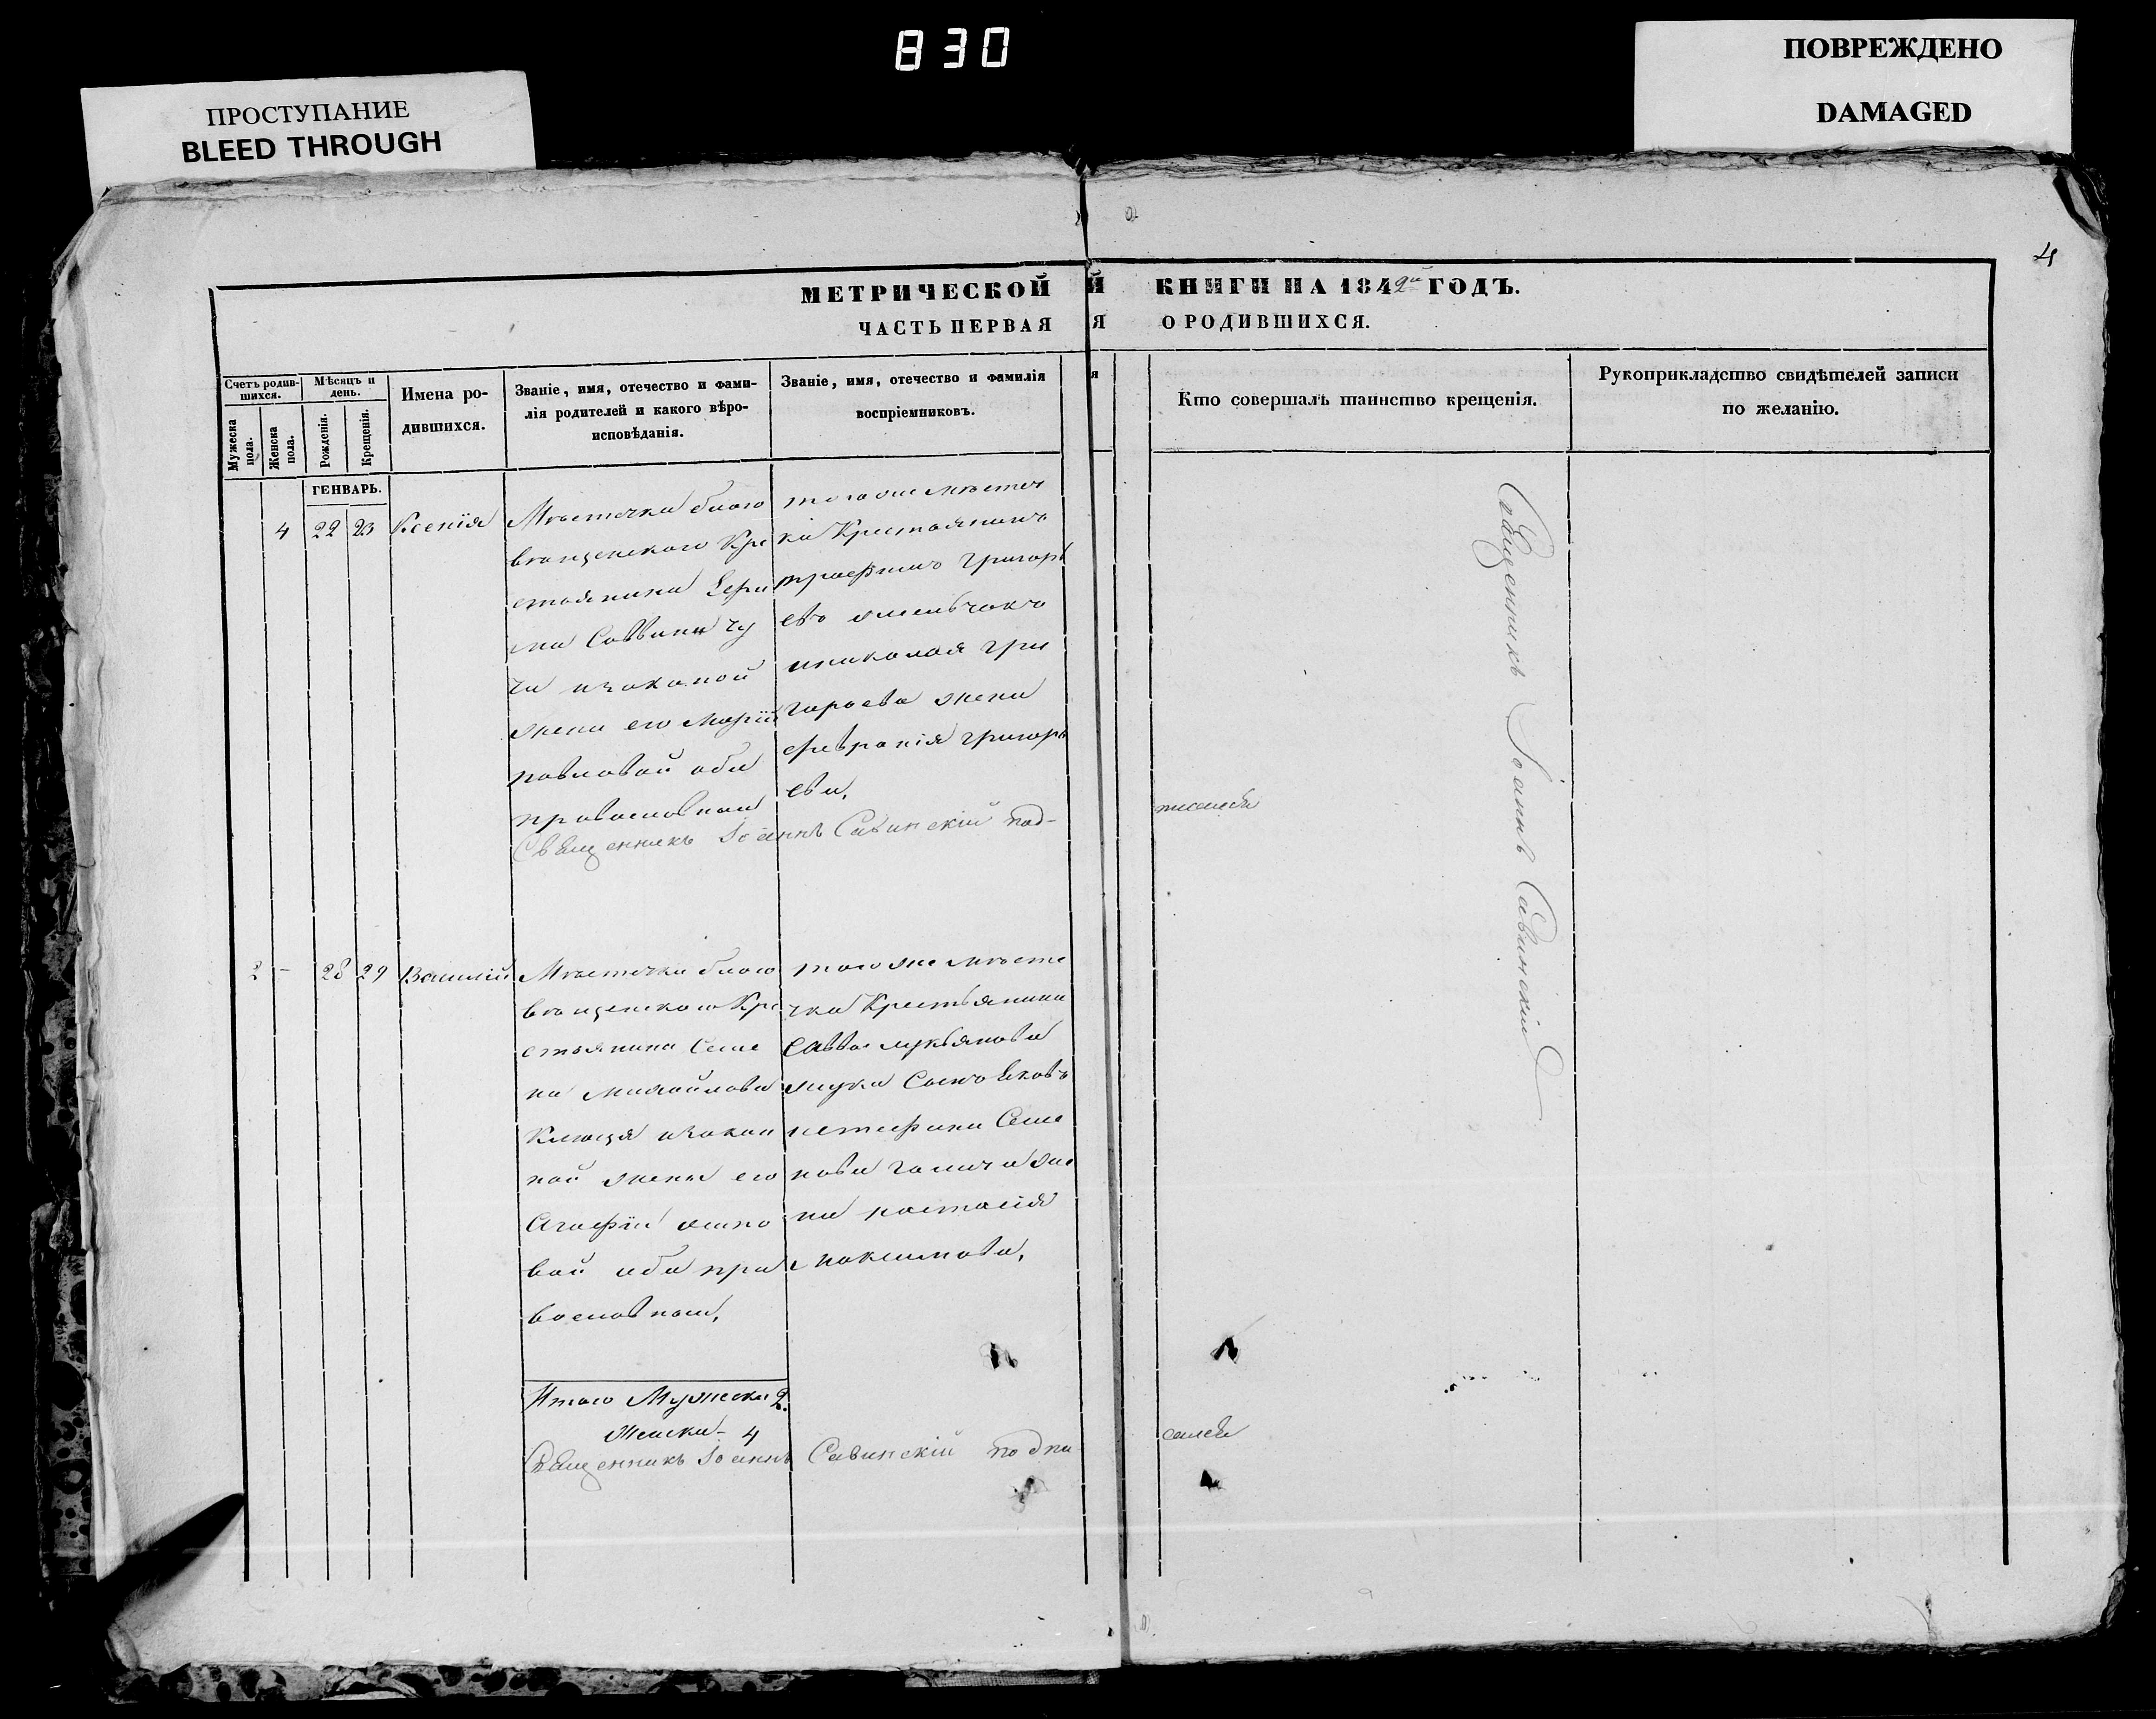 830
ПРОСТУПАНИЕ
BLEED THROUGH
ПОВРЕЖДЕНО
DAMAGED
4
МЕТРИЧЕСКОЙ Й КНИГИ НА 1842й ГОДЪ.
ЧАСТЬ ПЕРВАЯ Я О РОДИВШИХСЯ.
Счетъ родив-
шихся.
Мужеска пола.
Женска пола.
Мѣсяцъ и
день.
Рожденія.
Крещенія.
Имена ро-
дившихся.
Званіе, имя, отечество и фами-
лія родителей и какого вѣро-
исповѣданія.
Званіе, имя, отечество и фамилія
воспріемниковъ.
я
Кто совершалъ таинство крещенія.
Рукоприкладство свидѣтелей записи
по желанію.
ГЕНВАРЬ.
4 22 23 Ксенія
Мѣстечка благо
вѣщенскаго Кре
стьянина
ма Саввина Чу
жены его Маріи
Павловой оба
православныи
тогоже мѣстеч
ка Крестьянинъ
Трофимъ Григорь
евъ
николая Гри
горьева жена
Февронія Григорь
ева,
Священникъ Іоаннъ Савинскій под-
писался
Священникъ Іоаннъ Савинскій
2 - 28 29 Василій
Мѣстечка благо
вѣщенскаго Кре
стьянина Семе
на Михайлова
Клюця изакон
ной жены его
Агафіи
вой оба пра
вославныи,
тогоже мѣсте
чка Крестьянина
Савва Лукьянова
сынъ Яковъ
Семе
нова
на
Максимова,
Итого Мужеска 2.
Женска - 4
Священникъ Іоаннъ Савинскій подпи
сался